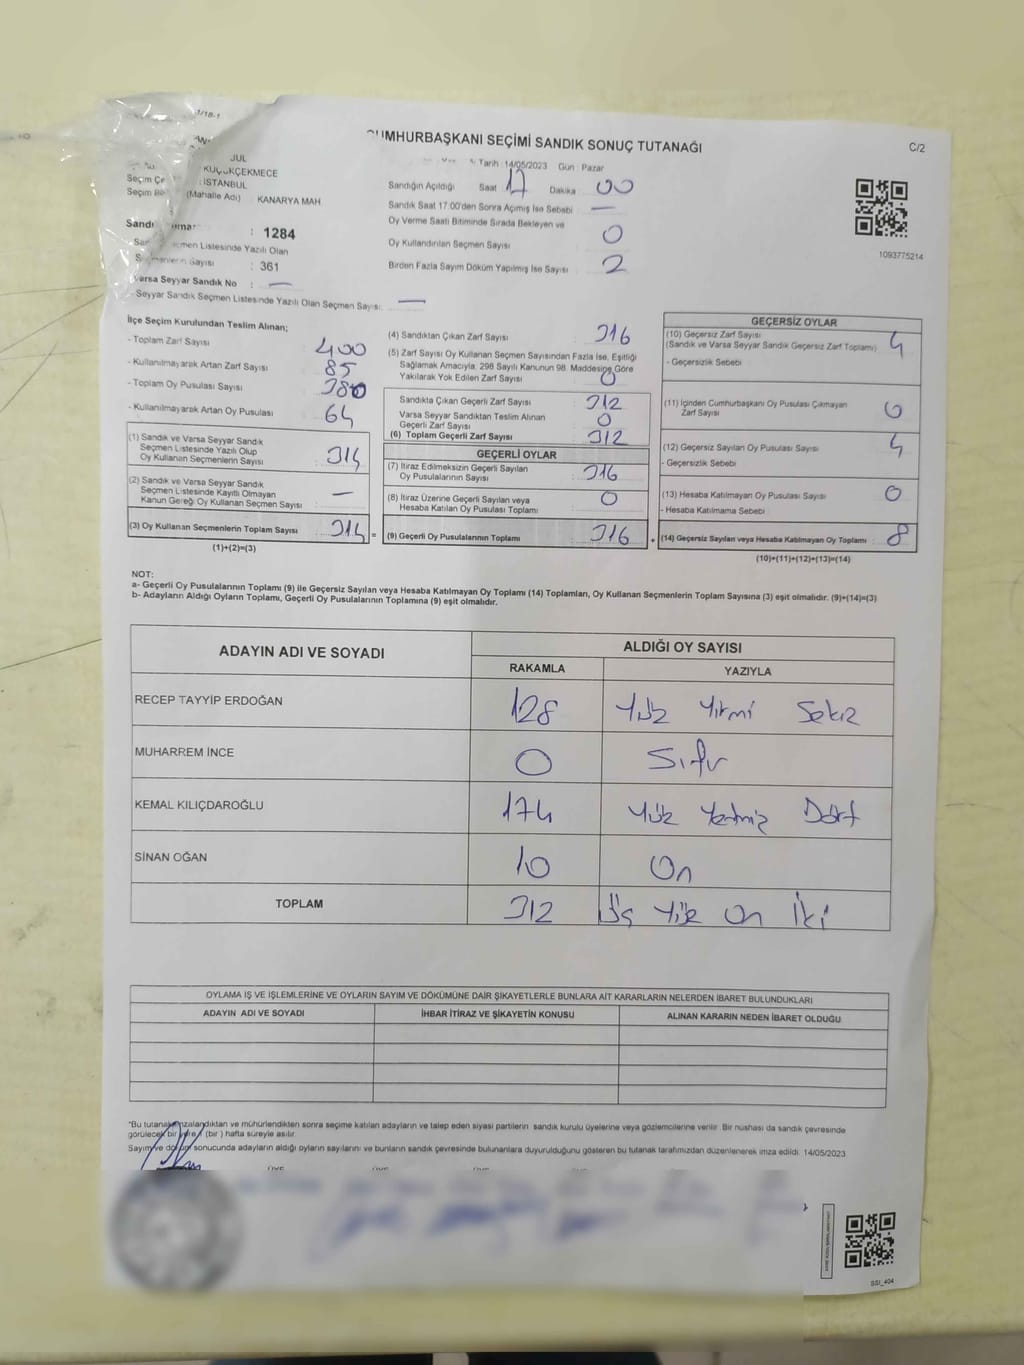 1/18-1
CUMHURBAŞKANI SEÇİMİ SANDIK SONUÇ TUTANAĞI
C/2
Tarih : 14/05/2023 Gün : Pazar
KÜÇÜKÇEKMECE
İSTANBUL
(Mahalle Adı) KANARYA MAH
: 1284
Listesinde Yazılı Olan
Sayısı : 361
Varsa Seyyar Sandık No : —
- Seyyar Sandık Seçmen Listesinde Yazılı Olan Seçmen Sayısı: —
Sandığın Açıldığı Saat 17 Dakika 00
Sandık Saat 17.00'den Sonra Açılmış İse Sebebi —
Oy Verme Saati Bitiminde Sırada Bekleyen ve
Oy Kullandırılan Seçmen Sayısı 0
Birden Fazla Sayım Döküm Yapılmış İse Sayısı 2
1093775214
İlçe Seçim Kurulundan Teslim Alınan;
- Toplam Zarf Sayısı 400
- Kullanılmayarak Artan Zarf Sayısı 85
- Toplam Oy Pusulası Sayısı 380
- Kullanılmayarak Artan Oy Pusulası 64
(1) Sandık ve Varsa Seyyar Sandık
Seçmen Listesinde Yazılı Olup
Oy Kullanan Seçmenlerin Sayısı 314
(2) Sandık ve Varsa Seyyar Sandık
Seçmen Listesinde Kayıtlı Olmayan
Kanun Gereği Oy Kullanan Seçmen Sayısı —
(3) Oy Kullanan Seçmenlerin Toplam Sayısı 314 =
(1)+(2)=(3)
(4) Sandıktan Çıkan Zarf Sayısı 316
(5) Zarf Sayısı Oy Kullanan Seçmen Sayısından Fazla İse, Eşitliği
Sağlamak Amacıyla, 298 Sayılı Kanunun 98. Maddesine Göre
Yakılarak Yok Edilen Zarf Sayısı 0
Sandıkta Çıkan Geçerli Zarf Sayısı 312
Varsa Seyyar Sandıktan Teslim Alınan
Geçerli Zarf Sayısı 0
(6) Toplam Geçerli Zarf Sayısı 312
GEÇERLİ OYLAR
(7) İtiraz Edilmeksizin Geçerli Sayılan
Oy Pusulalarının Sayısı 316
(8) İtiraz Üzerine Geçerli Sayılan veya
Hesaba Katılan Oy Pusulası Toplamı 0
(9) Geçerli Oy Pusulalarının Toplamı 316 +
GEÇERSİZ OYLAR
(10) Geçersiz Zarf Sayısı
(Sandık ve Varsa Seyyar Sandık Geçersiz Zarf Toplamı) 4
- Geçersizlik Sebebi
(11) İçinden Cumhurbaşkanı Oy Pusulası Çıkmayan
Zarf Sayısı 0
(12) Geçersiz Sayılan Oy Pusulası Sayısı 4
- Geçersizlik Sebebi
(13) Hesaba Katılmayan Oy Pusulası Sayısı 0
- Hesaba Katılmama Sebebi
(14) Geçersiz Sayılan veya Hesaba Katılmayan Oy Toplamı : 8
(10)+(11)+(12)+(13)=(14)
NOT:
a- Geçerli Oy Pusulalarının Toplamı (9) ile Geçersiz Sayılan veya Hesaba Katılmayan Oy Toplamı (14) Toplamları, Oy Kullanan Seçmenlerin Toplam Sayısına (3) eşit olmalıdır. (9)+(14)=(3)
b- Adayların Aldığı Oyların Toplamı, Geçerli Oy Pusulalarının Toplamına (9) eşit olmalıdır.
ADAYIN ADI VE SOYADI ALDIĞI OY SAYISI
RAKAMLA YAZIYLA
RECEP TAYYİP ERDOĞAN 128 Yüz Yirmi Sekiz
MUHARREM İNCE 0 Sıfır
KEMAL KILIÇDAROĞLU 174 Yüz Yetmiş Dört
SİNAN OĞAN 10 On
TOPLAM 312 Üç Yüz On İki
OYLAMA İŞ VE İŞLEMLERİNE VE OYLARIN SAYIM VE DÖKÜMÜNE DAİR ŞİKAYETLERLE BUNLARA AİT KARARLARIN NELERDEN İBARET BULUNDUKLARI
ADAYIN ADI VE SOYADI İHBAR İTİRAZ VE ŞİKAYETİN KONUSU ALINAN KARARIN NEDEN İBARET OLDUĞU
*Bu tutanak imzalandıktan ve mühürlendikten sonra seçime katılan adayların ve talep eden siyasi partilerin sandık kurulu üyelerine veya gözlemcilerine verilir. Bir nüshası da sandık çevresinde
görülecek bir yere (bir ) hafta süreyle asılır.
Sayım ve döküm sonucunda adayların aldığı oyların sayılarını ve bunların sandık çevresinde bulunanlara duyurulduğunu gösteren bu tutanak tarafımızdan düzenlenerek imza edildi. 14/05/2023
SSI_404